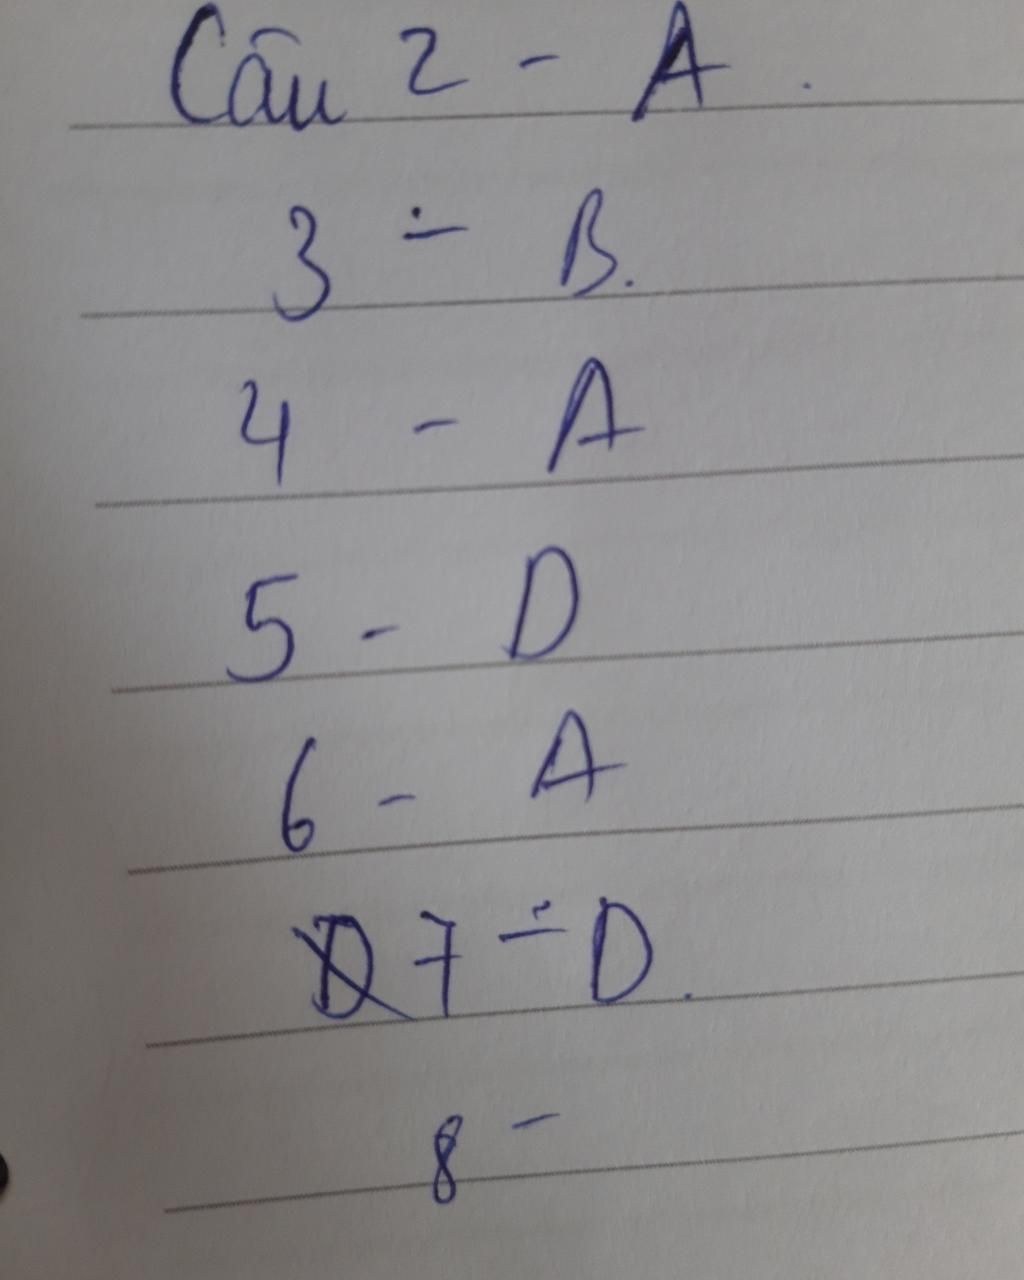 Câu 2 - A.
3 - B.
4 - A
5 - D
6 - A
7 - D.
8 -